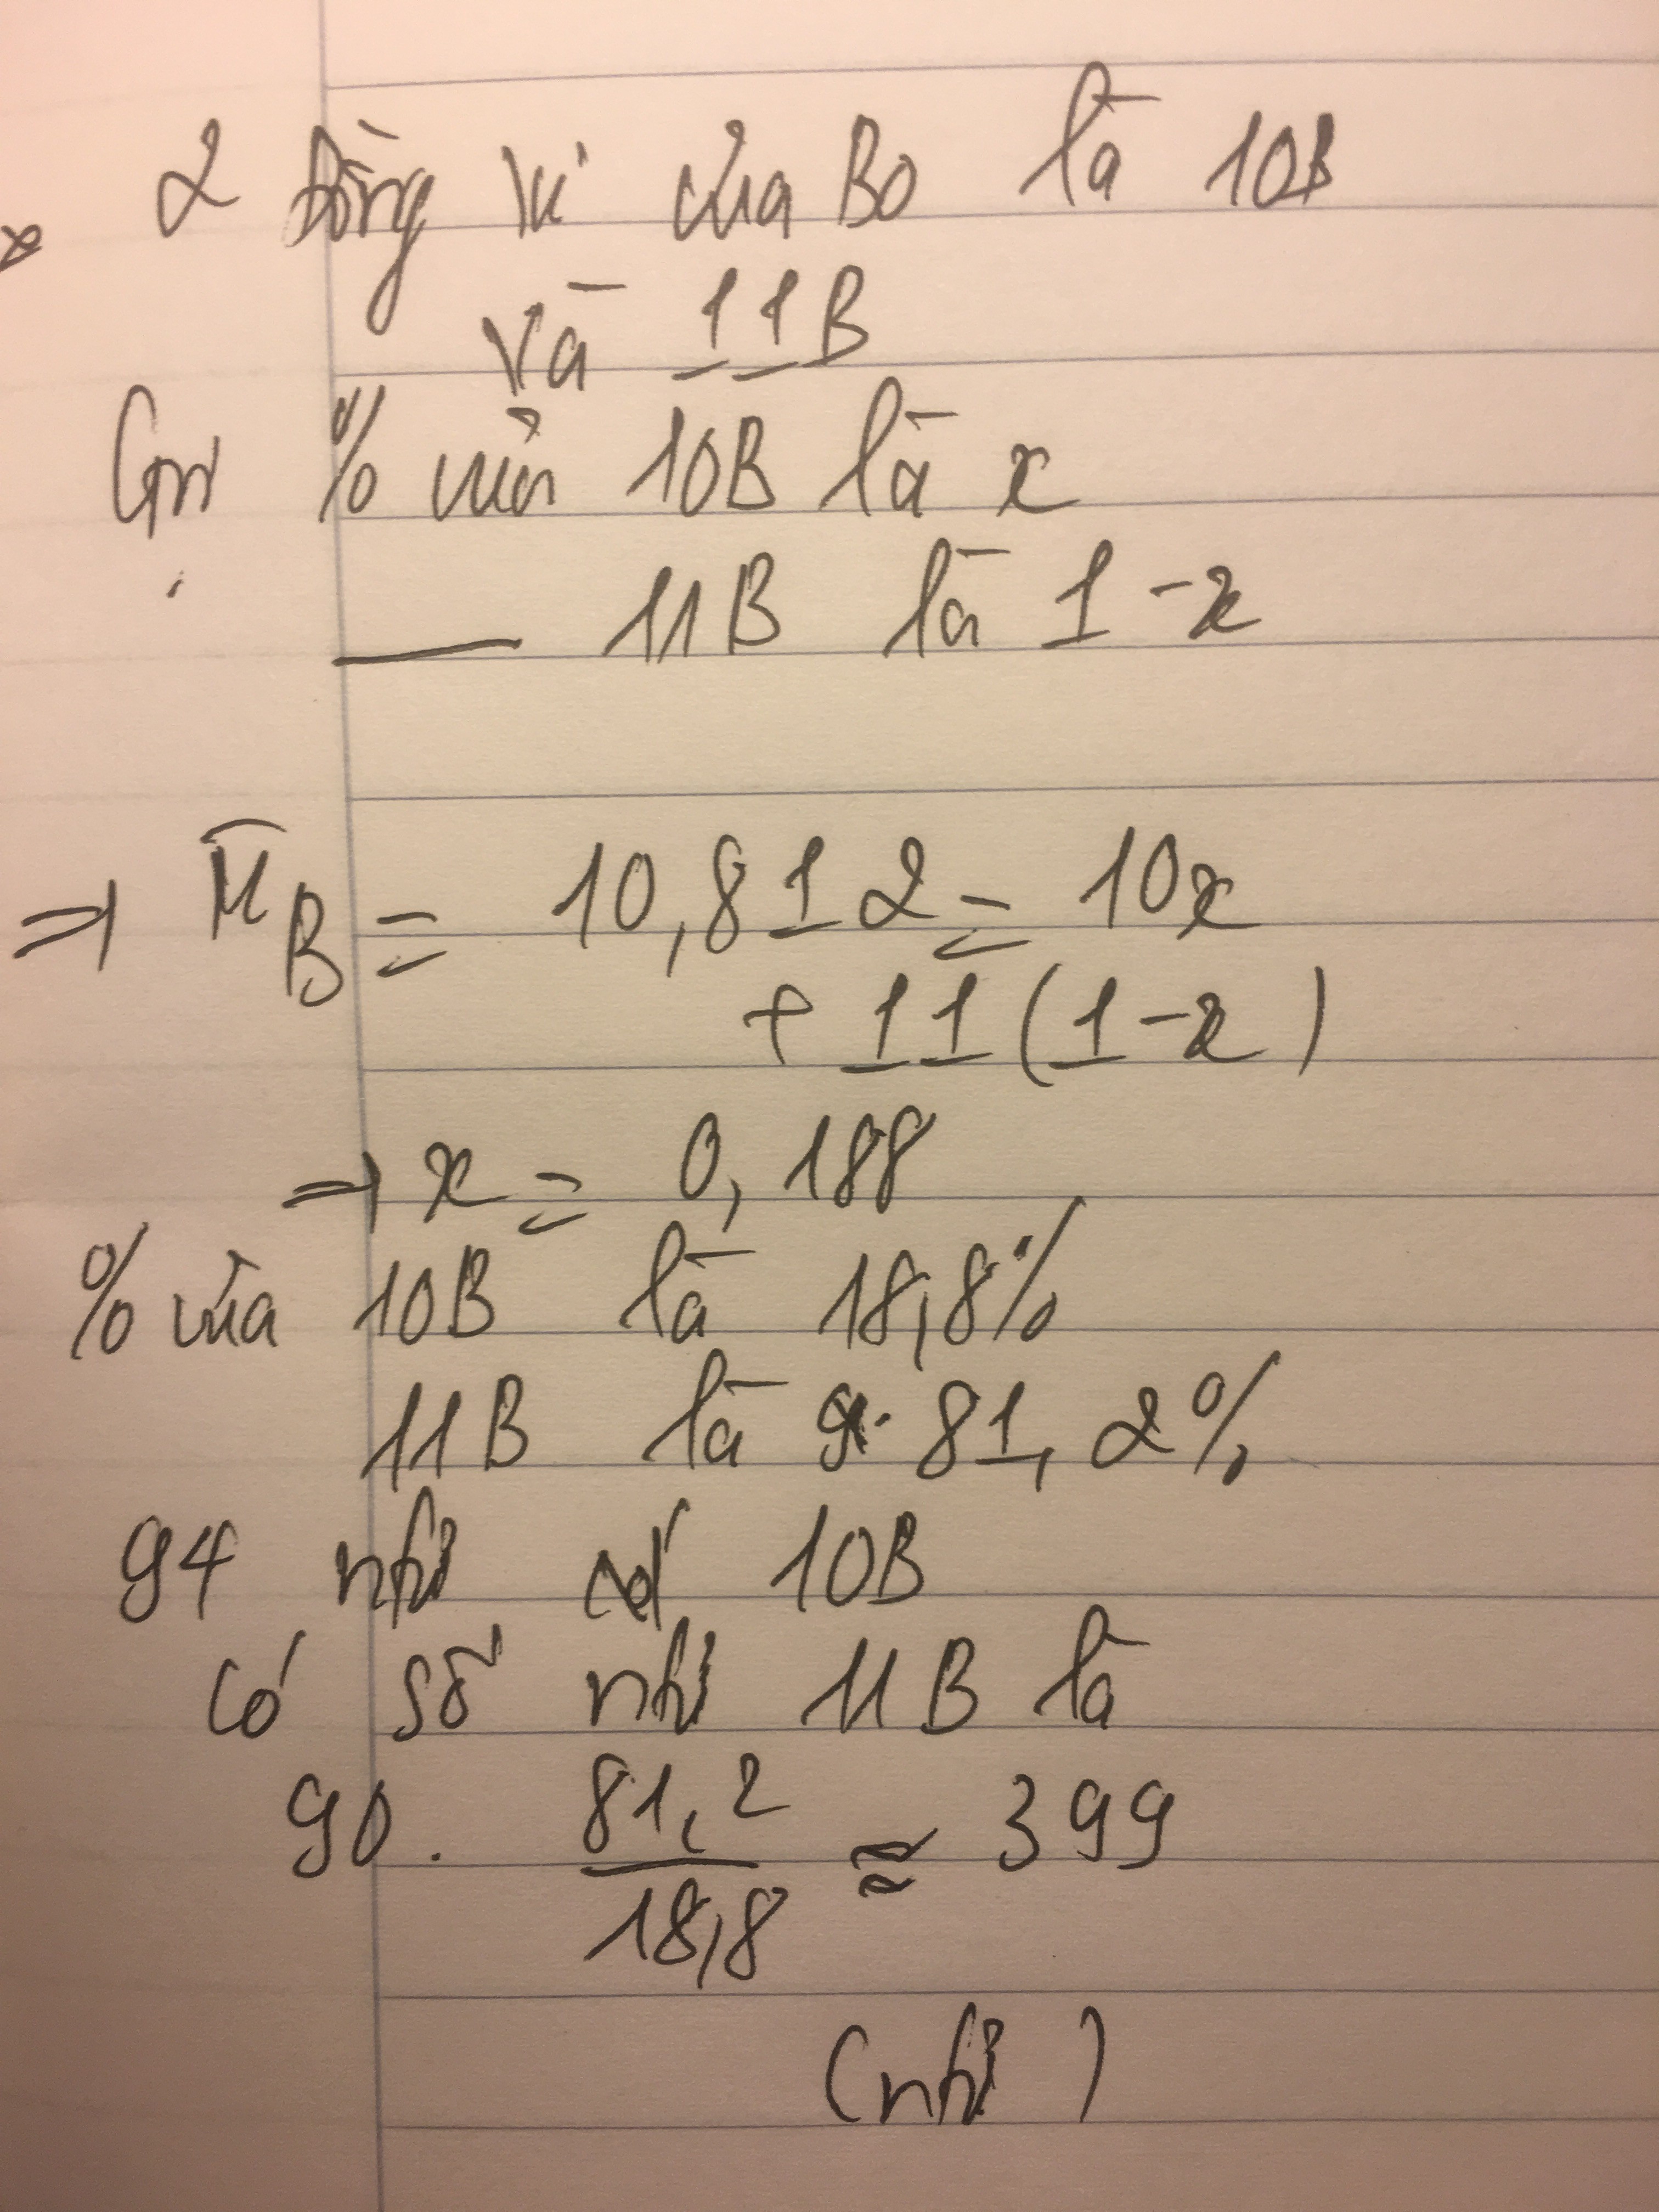 2 đồng vị của Bo là 10B
và 11B
Gọi % của 10B là x
— 11B là 1 - x
⇒ M̄B = 10,812 = 10x
+ 11(1-x)
⇒ x = 0,188
% của 10B là 18,8%
11B là 81,2%
94 ntử 10B
có số ntử 11B là
90. 81,2/18,8 ≈ 399
(ntử)